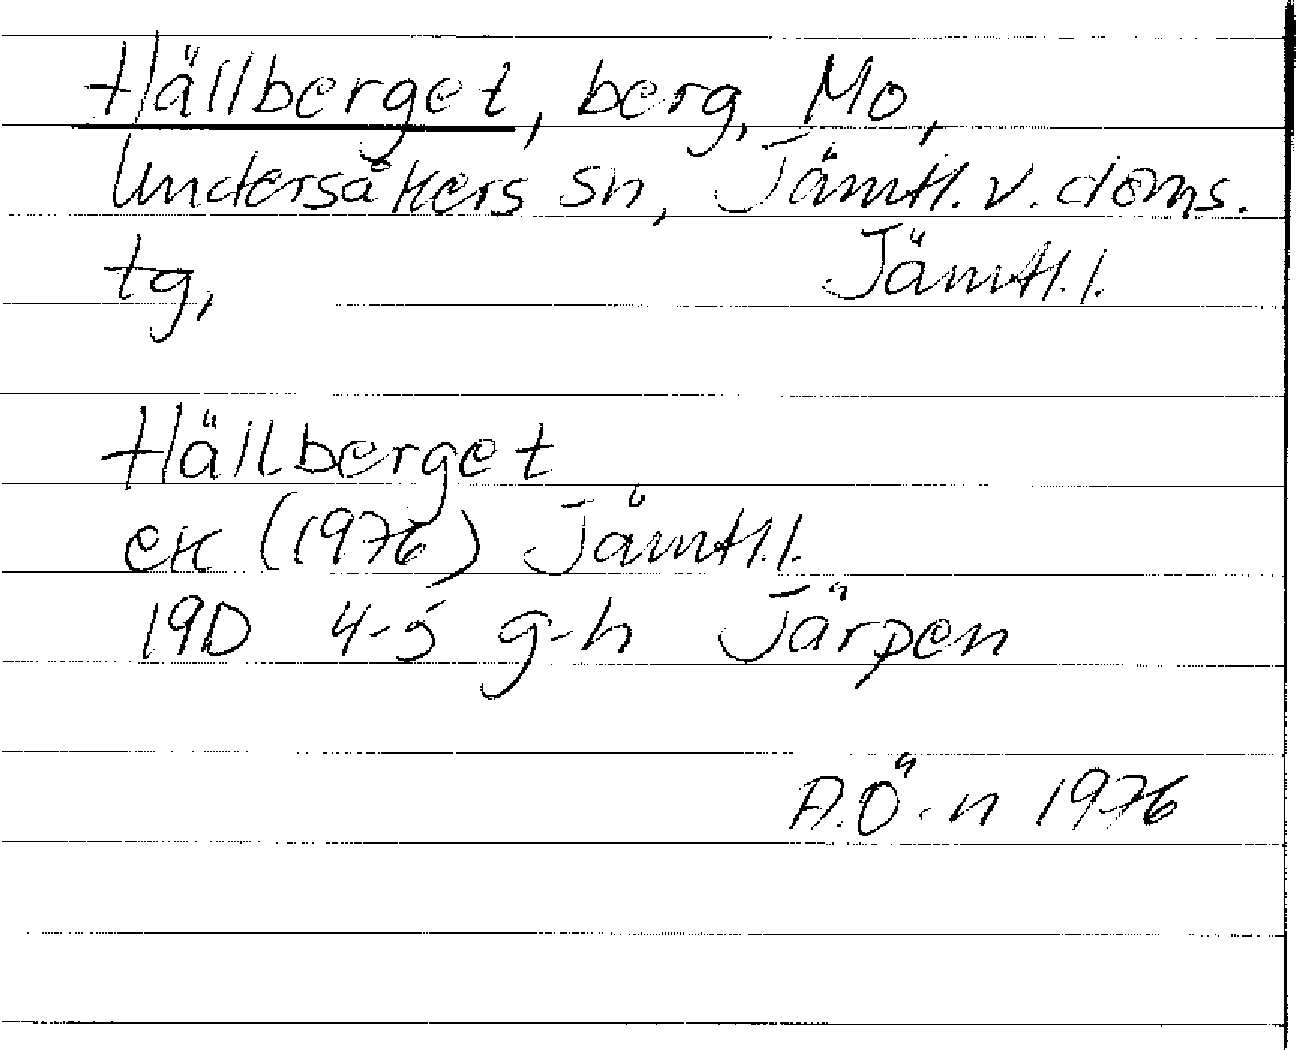 Hällberget, berg, Mo,
Undersåkers sn, Jämtl. v. doms.
tg, Jämtl. l.
Hällberget
ek (1976) Jämtl. l.
19D 4-5 g-h Järpen
A.Ö-n 1976